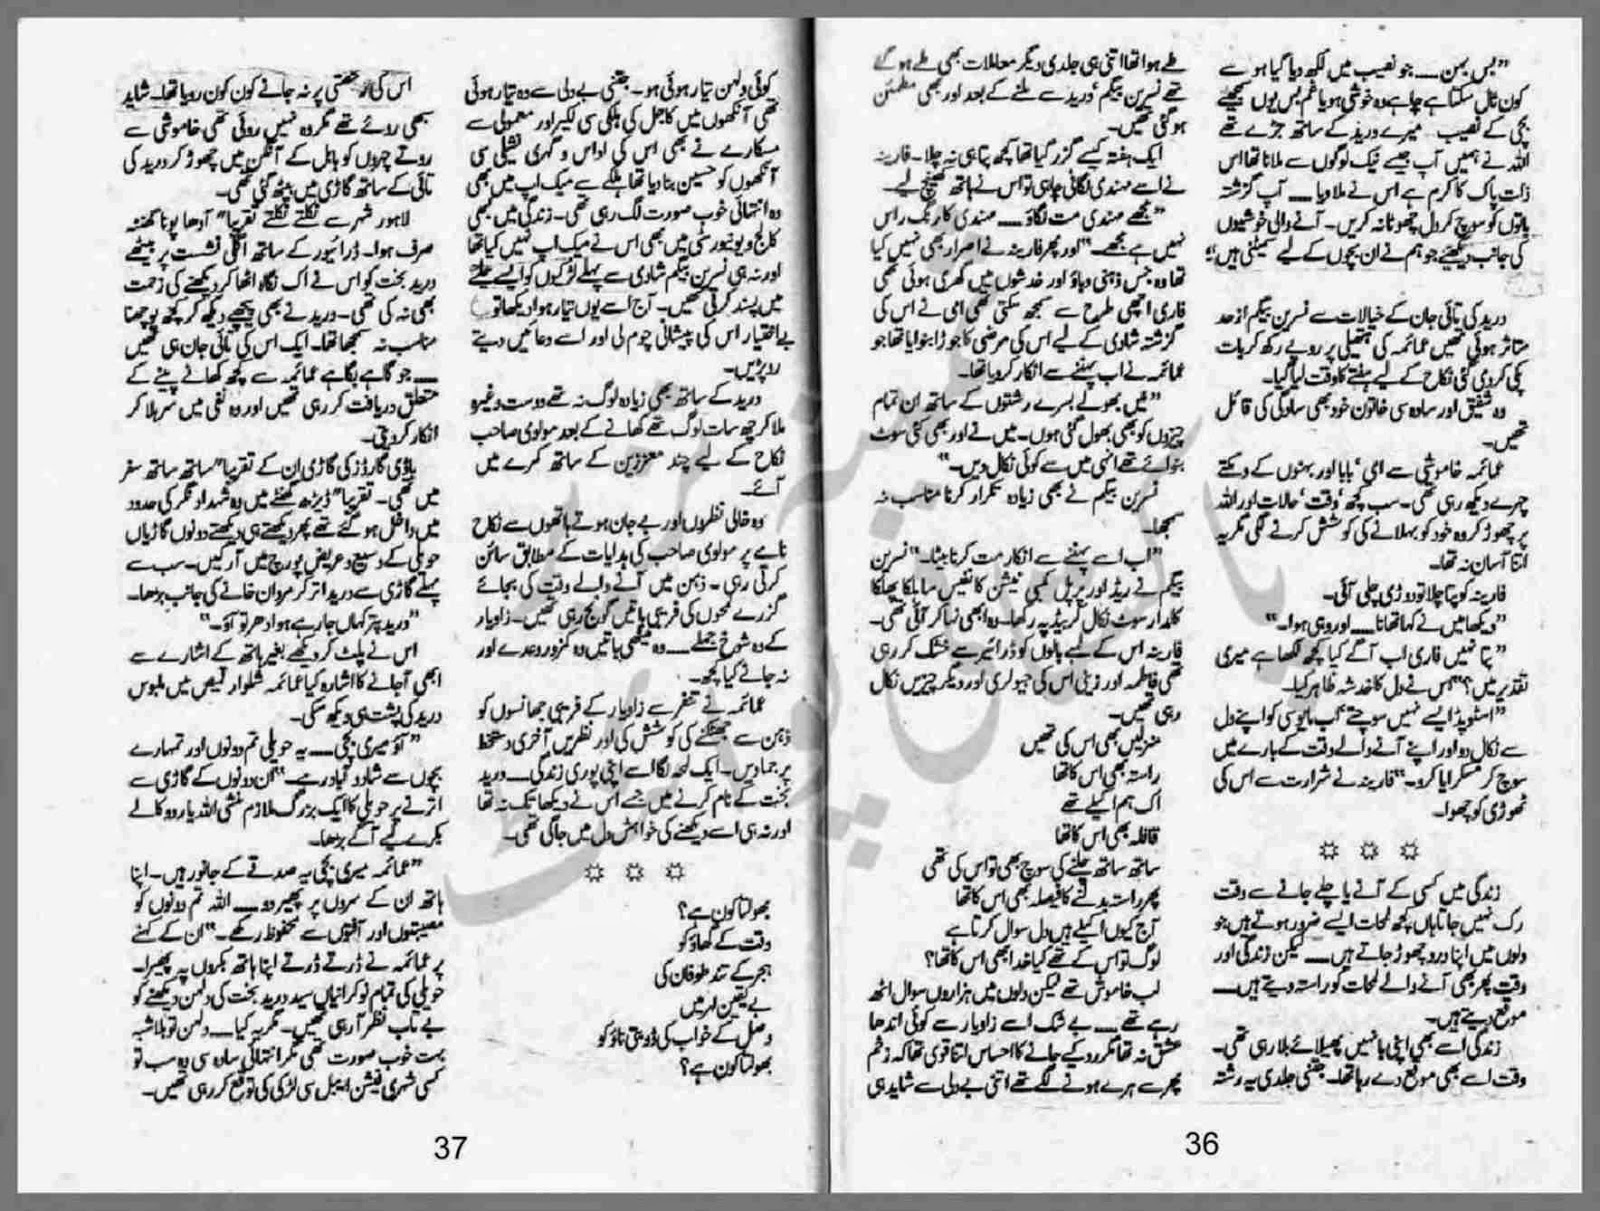 ”بس بہن ــــ جو نصیب میں لکھ دیا گیا ہو سے
کون ٹال سکتا ہے چاہے وہ خوشی ہو یا غم بس یوں سمجھیے
بچی کے نصیب میرے درید کے ساتھ جڑے تھے
اللہ نے ہمیں آپ جیسے نیک لوگوں سے ملانا تھا اس
ذات پاک کا کرم ہے اس نے ملا دیا ــــ آپ گزشتہ
باتوں کو سوچ کر دل چھوٹا نہ کریں۔ آنے والی خوشیوں
کی جانب دیکھئے جو ہم نے ان بچوں کے لیے سمیٹنی ہیں۔“
درید کی تائی جان کے خیالات سے نسرین بیگم ازحد
متاثر ہوئی تھیں عمائمہ کی ہتھیلی پر روپے رکھ کر بات
پکی کر دی گئی نکاح کے لیے ہفتے کا وقت لیا گیا۔
وہ شفیق اور سادہ سی خاتون خود بھی سادگی کی قائل
تھیں۔
عمائمہ خاموشی سے امی‘ بابا اور بہنوں کے دمکتے
چہرے دیکھ رہی تھی۔ سب کچھ ‘وقت‘ حالات اور اللہ
پر چھوڑ کر وہ خود کو بہلانے کی کوشش کرنے لگی مگر یہ
اتنا آسان نہ تھا۔
فارینہ کو پتا چلا تو دوڑی چلی آئی۔
”دیکھا میں نے کہا تھا نا ــــ اور وہی ہوا۔“
”پتا نہیں فاری اب آگے کیا کچھ لکھا ہے میری
تقدیر میں؟“ اس نے دل کا خدشہ ظاہر کیا۔
”اسٹوپڈ ایسے نہیں سوچتے‘ اب مایوسی کو اپنے دل
سے نکال دو اور اپنے آنے والے وقت کے بارے میں
سوچ کر مسکرایا کرو۔“ فارینہ نے شرارت سے اس کی
ٹھوڑی کو چھوا۔
زندگی میں کسی کے آنے یا چلے جانے سے وقت
رک نہیں جاتا ہاں کچھ لمحات ایسے ضرور ہوتے ہیں جو
دلوں میں اپنا درد چھوڑ جاتے ہیں ــــ لیکن زندگی اور
وقت پھر بھی آنے والے لمحات کو راستہ دیتے ہیں ــــ
موقع دیتے ہیں۔
زندگی اسے بھی اپنی بانہیں پھیلائے بلا رہی تھی۔
وقت اسے بھی موقع دے رہا تھا۔ جتنی جلدی یہ رشتہ
طے ہوا تھا اتنی ہی جلدی دیگر معاملات بھی طے ہو گئے
تھے نسرین بیگم‘ درید سے ملنے کے بعد اور بھی مطمئن
ہو گئی تھیں۔
ایک ہفتہ کیسے گزر گیا تھا کچھ پتا ہی نہ چلا۔ فارینہ
نے اسے مہندی لگانی چاہی تو اس نے ہاتھ کھینچ لیے۔
”مجھے مہندی مت لگاؤ ــــ مہندی کا رنگ راس
نہیں ہے مجھے۔“ اور پھر فارینہ نے اصرار بھی نہیں کیا
تھا وہ جس ذہنی دباؤ اور خدشوں میں گھری ہوئی تھی
فاری اچھی طرح سے سمجھ سکتی تھی امی نے اس کی
گزشتہ شادی کے لیے اس کی مرضی کا جوڑا بنوایا تھا جو
عمائمہ نے اب پہننے سے انکار کر دیا تھا۔
”میں بھولے بسرے رشتوں کے ساتھ ان تمام
چیزوں کو بھی بھول گئی ہوں۔ میں نے اور بھی کئی سوٹ
بنوائے تھے انہی میں سے کوئی نکال دیں۔“
نسرین بیگم نے بھی زیادہ تکرار کرنا مناسب نہ
سمجھا۔
”اب اسے پہننے سے انکار مت کرنا بیٹا۔“ نسرین
بیگم نے ریڈ اور پرپل کمبی نیشن کا نفیس سا ہلکا پھلکا
کامدار سوٹ نکال کر بیڈ پہ رکھا۔ وہ ابھی نہا کر آئی تھی۔
فارینہ اس کے لمبے بالوں کو ڈرائیر سے خشک کر رہی
تھی فاطمہ اور زینی اس کی جیولری اور دیگر چیزیں نکال
رہی تھیں۔
منزلیں بھی اس کی تھیں
راستہ بھی اس کا تھا
اک ہم اکیلے تھے
قافلہ بھی اس کا تھا
ساتھ ساتھ چلنے کی سوچ بھی تو اس کی تھی
پھر راستہ بدلنے کا فیصلہ بھی اس کا تھا
آج کیوں اکیلے ہیں دل سوال کرتا ہے
لوگ تو اس کے تھے کیا خدا بھی اس کا تھا؟
لب خاموش تھے لیکن دلوں میں ہزاروں سوال اٹھ
رہے تھے ــــ بے شک اسے زاویار سے کوئی اندھا
عشق نہ تھا مگر رد کیے جانے کا احساس اتنا قوی تھا کہ زخم
پھر سے ہرے ہونے لگے تھے اتنی بے دلی سے شاید ہی
36
کوئی دلہن تیار ہوئی ہو۔ جتنی بے دلی سے وہ تیار ہوئی
تھی آنکھوں میں کاجل کی ہلکی سی لکیر اور معمولی سے
مسکارے نے بھی اس کی اداس و گہری نشیلی سی
آنکھوں کو حسین بنا دیا تھا ہلکے سے میک اپ میں بھی
وہ انتہائی خوب صورت لگ رہی تھی۔ زندگی میں کبھی
کالج و یونیورسٹی میں بھی اس نے میک اپ نہیں کیا تھا
اور نہ ہی نسرین بیگم شادی سے پہلے لڑکیوں کو ایسے
میں پسند کرتی تھیں۔ آج اسے یوں تیار ہوا دیکھا تو
بے اختیار اس کی پیشانی چوم لی اور اسے دعائیں دیتے
رو پڑیں۔
درید کے ساتھ بھی زیادہ لوگ نہ تھے دوست وغیرہ
ملا کر چھ سات لوگ تھے کھانے کے بعد مولوی صاحب
نکاح کے لیے چند معززین کے ساتھ کمرے میں
آئے۔
وہ خالی نظروں اور بے جان ہوتے ہاتھوں سے نکاح
نامے پر مولوی صاحب کی ہدایات کے مطابق سائن
کرتی رہی۔ ذہن میں آنے والے وقت کی بجائے
گزرے لمحوں کی فریبی باتیں گونج رہی تھیں۔ زاویار
کے وہ شوخ جملے ــــ وہ میٹھی باتیں وہ کمزور وعدے اور
نہ جانے کیا کچھ۔
عمائمہ نے تنفر سے زاویار کے فریبی جھانسوں کو
ذہن سے جھٹکنے کی کوشش کی اور نظریں آخری دستخط
پر جما دیں۔ ایک لمحہ لگا اسے اپنی پوری زندگی ــــ درید
بخت کے نام کرنے میں جسے اس نے دیکھا تک نہ تھا
اور نہ ہی اسے دیکھنے کی خواہش دل میں جاگی تھی۔
بھولتا کون ہے؟
وقت کے گھاؤ کو
ہجر کے تند طوفان کی
بے یقین لہر میں
وصل کے خواب کی ڈوبتی ناؤ کو
بھولتا کون ہے؟
اس کی رخصتی پر نہ جانے کون کون رویا تھا۔ شاید
سبھی روئے تھے مگر وہ نہیں روئی تھی خاموشی سے
روتے چہروں کو بابل کے آنگن میں چھوڑ کر درید کی
تائی کے ساتھ گاڑی میں بیٹھ گئی تھی۔
لاہور شہر سے نکلتے نکلتے تقریبا” آدھا پونا گھنٹہ
صرف ہوا۔ ڈرائیور کے ساتھ اگلی نشست پر بیٹھے
درید بخت کو اس نے اک نگاہ اٹھا کر دیکھنے کی زحمت
بھی نہ کی تھی۔ درید نے بھی پیچھے دیکھ کر کچھ پوچھنا
مناسب نہ سمجھا تھا۔ ایک اس کی تائی جان ہی تھیں
ــــ جو گاہے بگاہے عمائمہ سے کچھ کھانے پینے کے
متعلق دریافت کر رہی تھیں اور وہ نفی میں سر ہلا کر
انکار کر دیتی۔
باڈی گارڈز کی گاڑی ان کے تقریبا” ساتھ ساتھ سفر
میں تھی۔ تقریبا” ڈیڑھ گھنٹے میں وہ شہداد نگر کی حدود
میں داخل ہو گئے تھے پھر دیکھتے ہی دیکھتے دونوں گاڑیاں
حویلی کے وسیع و عریض پورچ میں آ رکیں۔ سب سے
پہلے گاڑی سے درید اتر کر مردان خانے کی جانب بڑھا۔
”درید پتر کہاں جا رہے ہو ادھر تو آؤ۔“
اس نے پلٹ کر دیکھے بغیر ہاتھ کے اشارے سے
ابھی آ جانے کا اشارہ کیا عمائمہ شلوار قمیص میں ملبوس
درید کی پشت ہی دیکھ سکی۔
”آؤ میری بچی ــــ یہ حویلی تم دونوں اور تمہارے
بچوں سے شاد و آباد رہے۔“ ان دونوں کے گاڑی سے
اترنے پر حویلی کا ایک بزرگ ملازم منشی اللہ یار دو کالے
بکرے لیے آگے بڑھا۔
”عمائمہ میری بچی یہ صدقے کے جانور ہیں۔ اپنا
ہاتھ ان کے سروں پر پھیر دو ــــ اللہ تم دونوں کو
مصیبتوں اور آفتوں سے محفوظ رکھے۔“ ان کے کہنے
پر عمائمہ نے ڈرتے ڈرتے اپنا ہاتھ بکروں پہ پھیرا۔
حویلی کی تمام نوکرانیاں سید درید بخت کی دلہن دیکھنے کو
بے تاب نظر آ رہی تھیں۔ مگر یہ کیا ــــ دلہن تو بلاشبہ
بہت خوب صورت تھی مگر انتہائی سادہ سی وہ سب تو
کسی شہری فیشن ایبل سی لڑکی کی توقع کر رہی تھیں۔
37